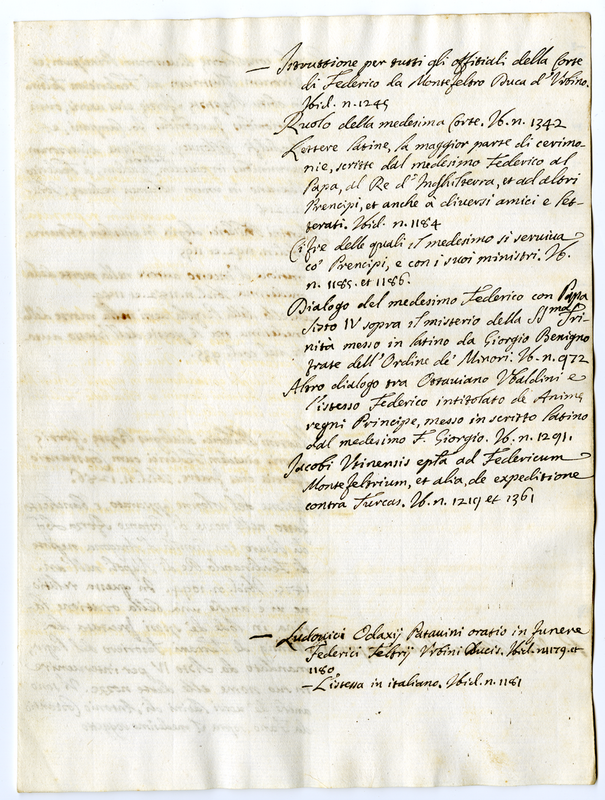 — Istruttione per tutti gli offitiali della Corte
di Federico da Montefeltro Duca d'Urbino.
Ibid. n. 1245
Ruolo della medesima Corte. Ib. n. 1342
Lettere latine, la maggior parte di cerimo-
nie, scritte dal medesimo Federico al
Papa, al Re d'Inghilterra, et ad altri
Prencipi, et anche a diversi amici e let-
terati. Ibid. n. 1184
Cifre delle quali il medesimo si serviva
co' Prencipi, e con i suoi ministri. Ib.
n. 1185. et 1186.
Dialogo del medesimo Federico con Papa
Sisto IV sopra il misterio della SSma Tri-
nità messo in latino da Giorgio Benigno
frate dell'Ordine de' Minori. Ib. n. 972
Altro dialogo tra Ottaviano Ubaldini e
l'istesso Federico intitolato de Anima
regni Principe, messo in scritto latino
dal medesimo F. Giorgio. Ib. n. 1291.
Jacobi Utinensis epla ad Federicum
Montefeltrium, et alia, de expeditione
contra Turcas. Ib. n. 1219 et 1361
— Ludovici Odaxij Patavini oratio in funere
Federici Feltrij Urbini Ducis. Ibid. n. 1179. et
1180
— L'istessa in italiano. Ibid. n. 1181